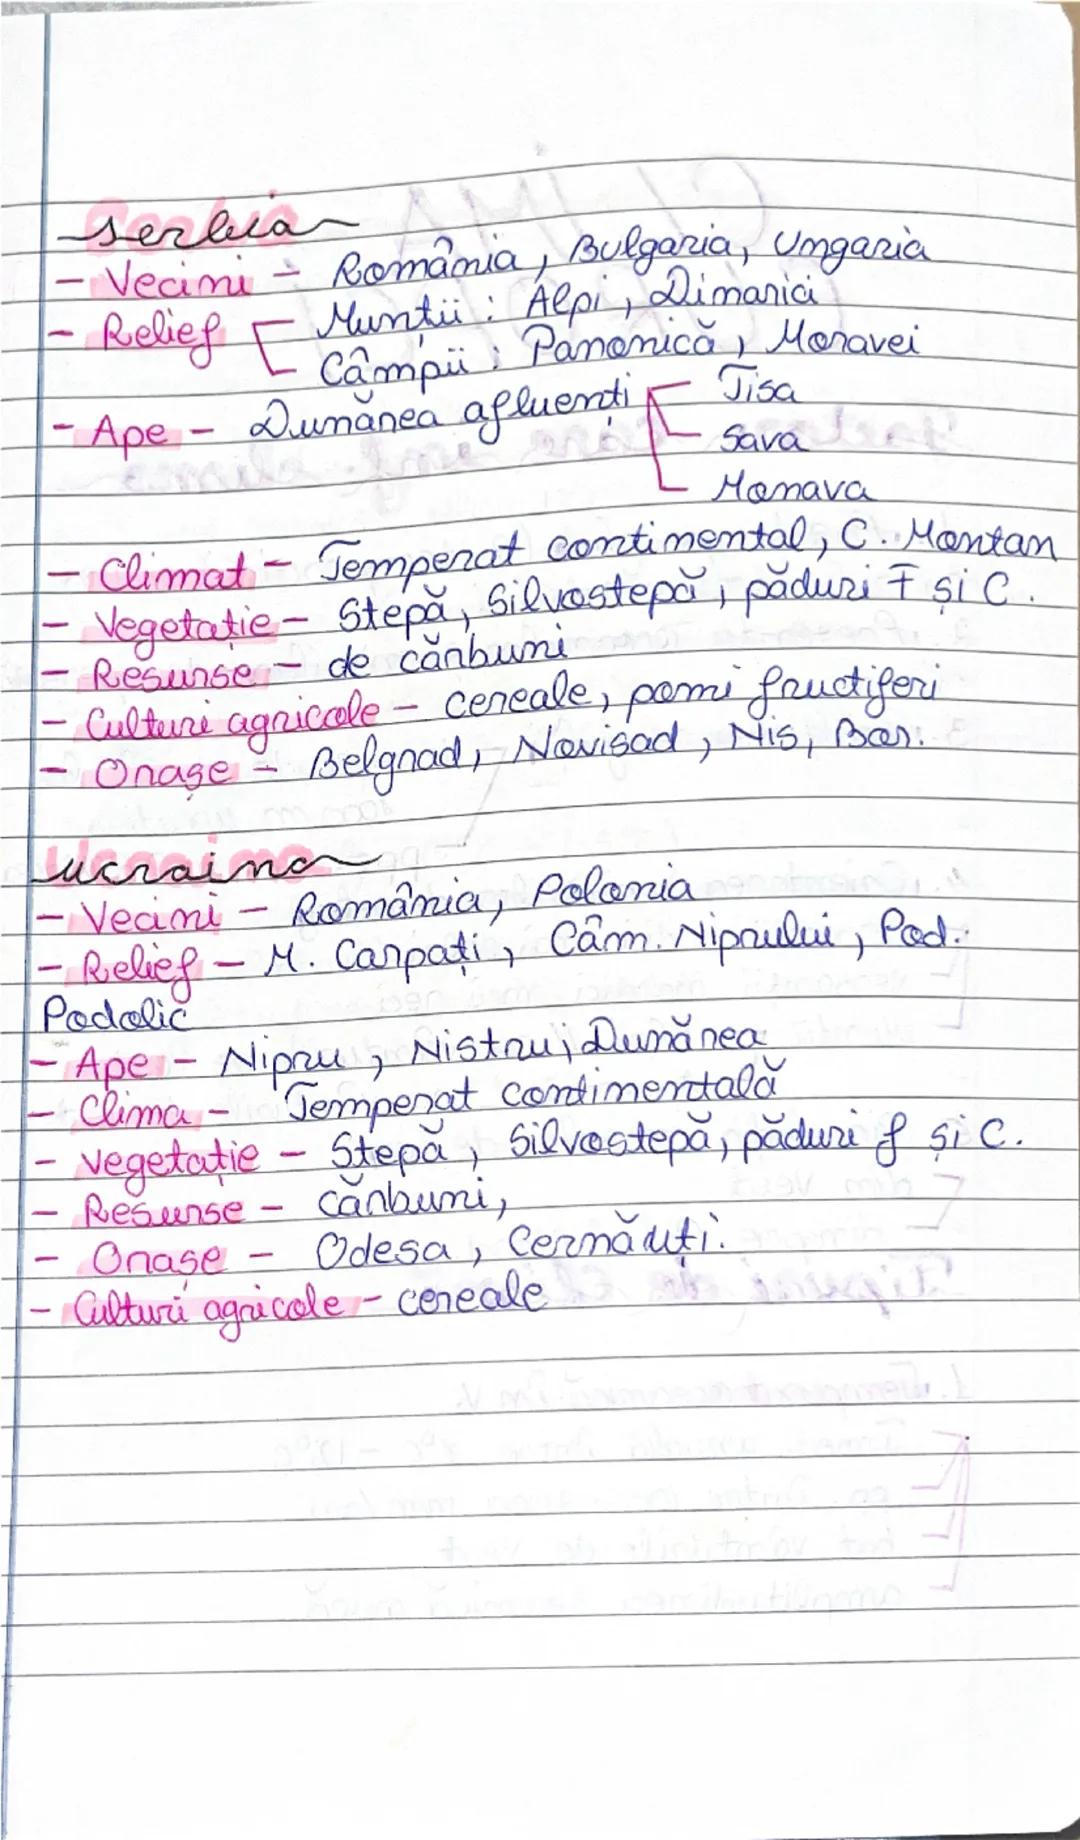 Serbia
- Vecini - România, Bulgaria, Ungaria
- Relief Munții: Alpi, Dinarici
Câmpii: Panonică, Moravei
- Ape - Dunănea afluenți Tisa
Sava
Morava
- Climat - Temperat continental, C. Montan
- Vegetație - Stepă, Silvostepă, păduri F și C.
- Resurse - de cărbuni
- Culturi agricole - cereale, pomi fructiferi
- Orașe - Belgrad, Novisad, Nis, Bor.
Ucraina
- Vecini - România, Polonia
- Relief - M. Carpați, Câm. Niprului, Pod.
Podolic
- Ape - Nipru, Nistru, Dunărea
- Clima - Temperat continentală
- Vegetație - Stepă, Silvostepă, păduri f și C.
- Resurse - cărbuni,
- Orașe - Odesa, Cernăuți.
- Culturi agricole - cereale